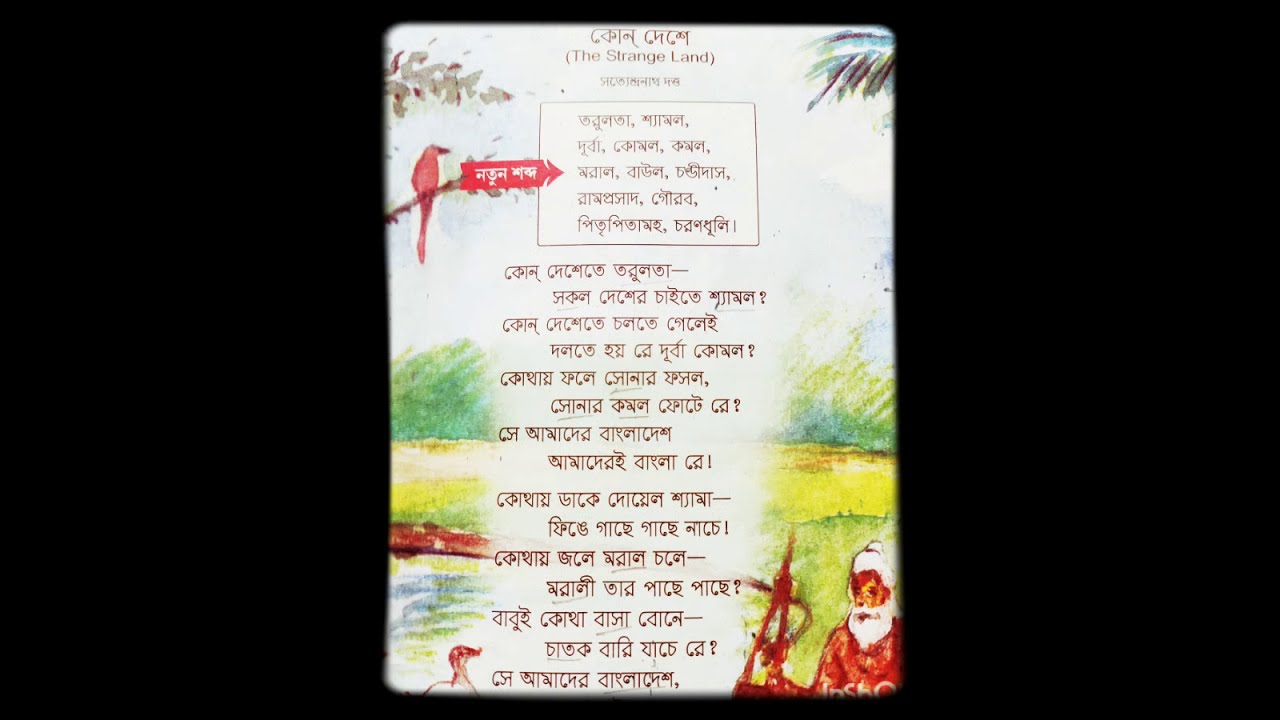 কোন্ দেশে
(The Strange Land)
সত্যেন্দ্রনাথ দত্ত
তরুলতা, শ্যামল,
দূর্বা, কোমল, কমল,
নতুন শব্দ
মরাল, বাউল, চণ্ডীদাস,
রামপ্রসাদ, গৌরব,
পিতৃপিতামহ, চরণধূলি।
কোন্ দেশেতে তরুলতা—
সকল দেশের চাইতে শ্যামল?
কোন্ দেশেতে চলতে গেলেই
দলতে হয় রে দূর্বা কোমল?
কোথায় ফলে সোনার ফসল,
সোনার কমল ফোটে রে?
সে আমাদের বাংলাদেশ
আমাদেরই বাংলা রে!
কোথায় ডাকে দোয়েল শ্যামা—
ফিঙে গাছে গাছে নাচে!
কোথায় জলে মরাল চলে—
মরালী তার পাছে পাছে?
বাবুই কোথা বাসা বোনে—
চাতক বারি যাচে রে?
সে আমাদের বাংলাদেশ,